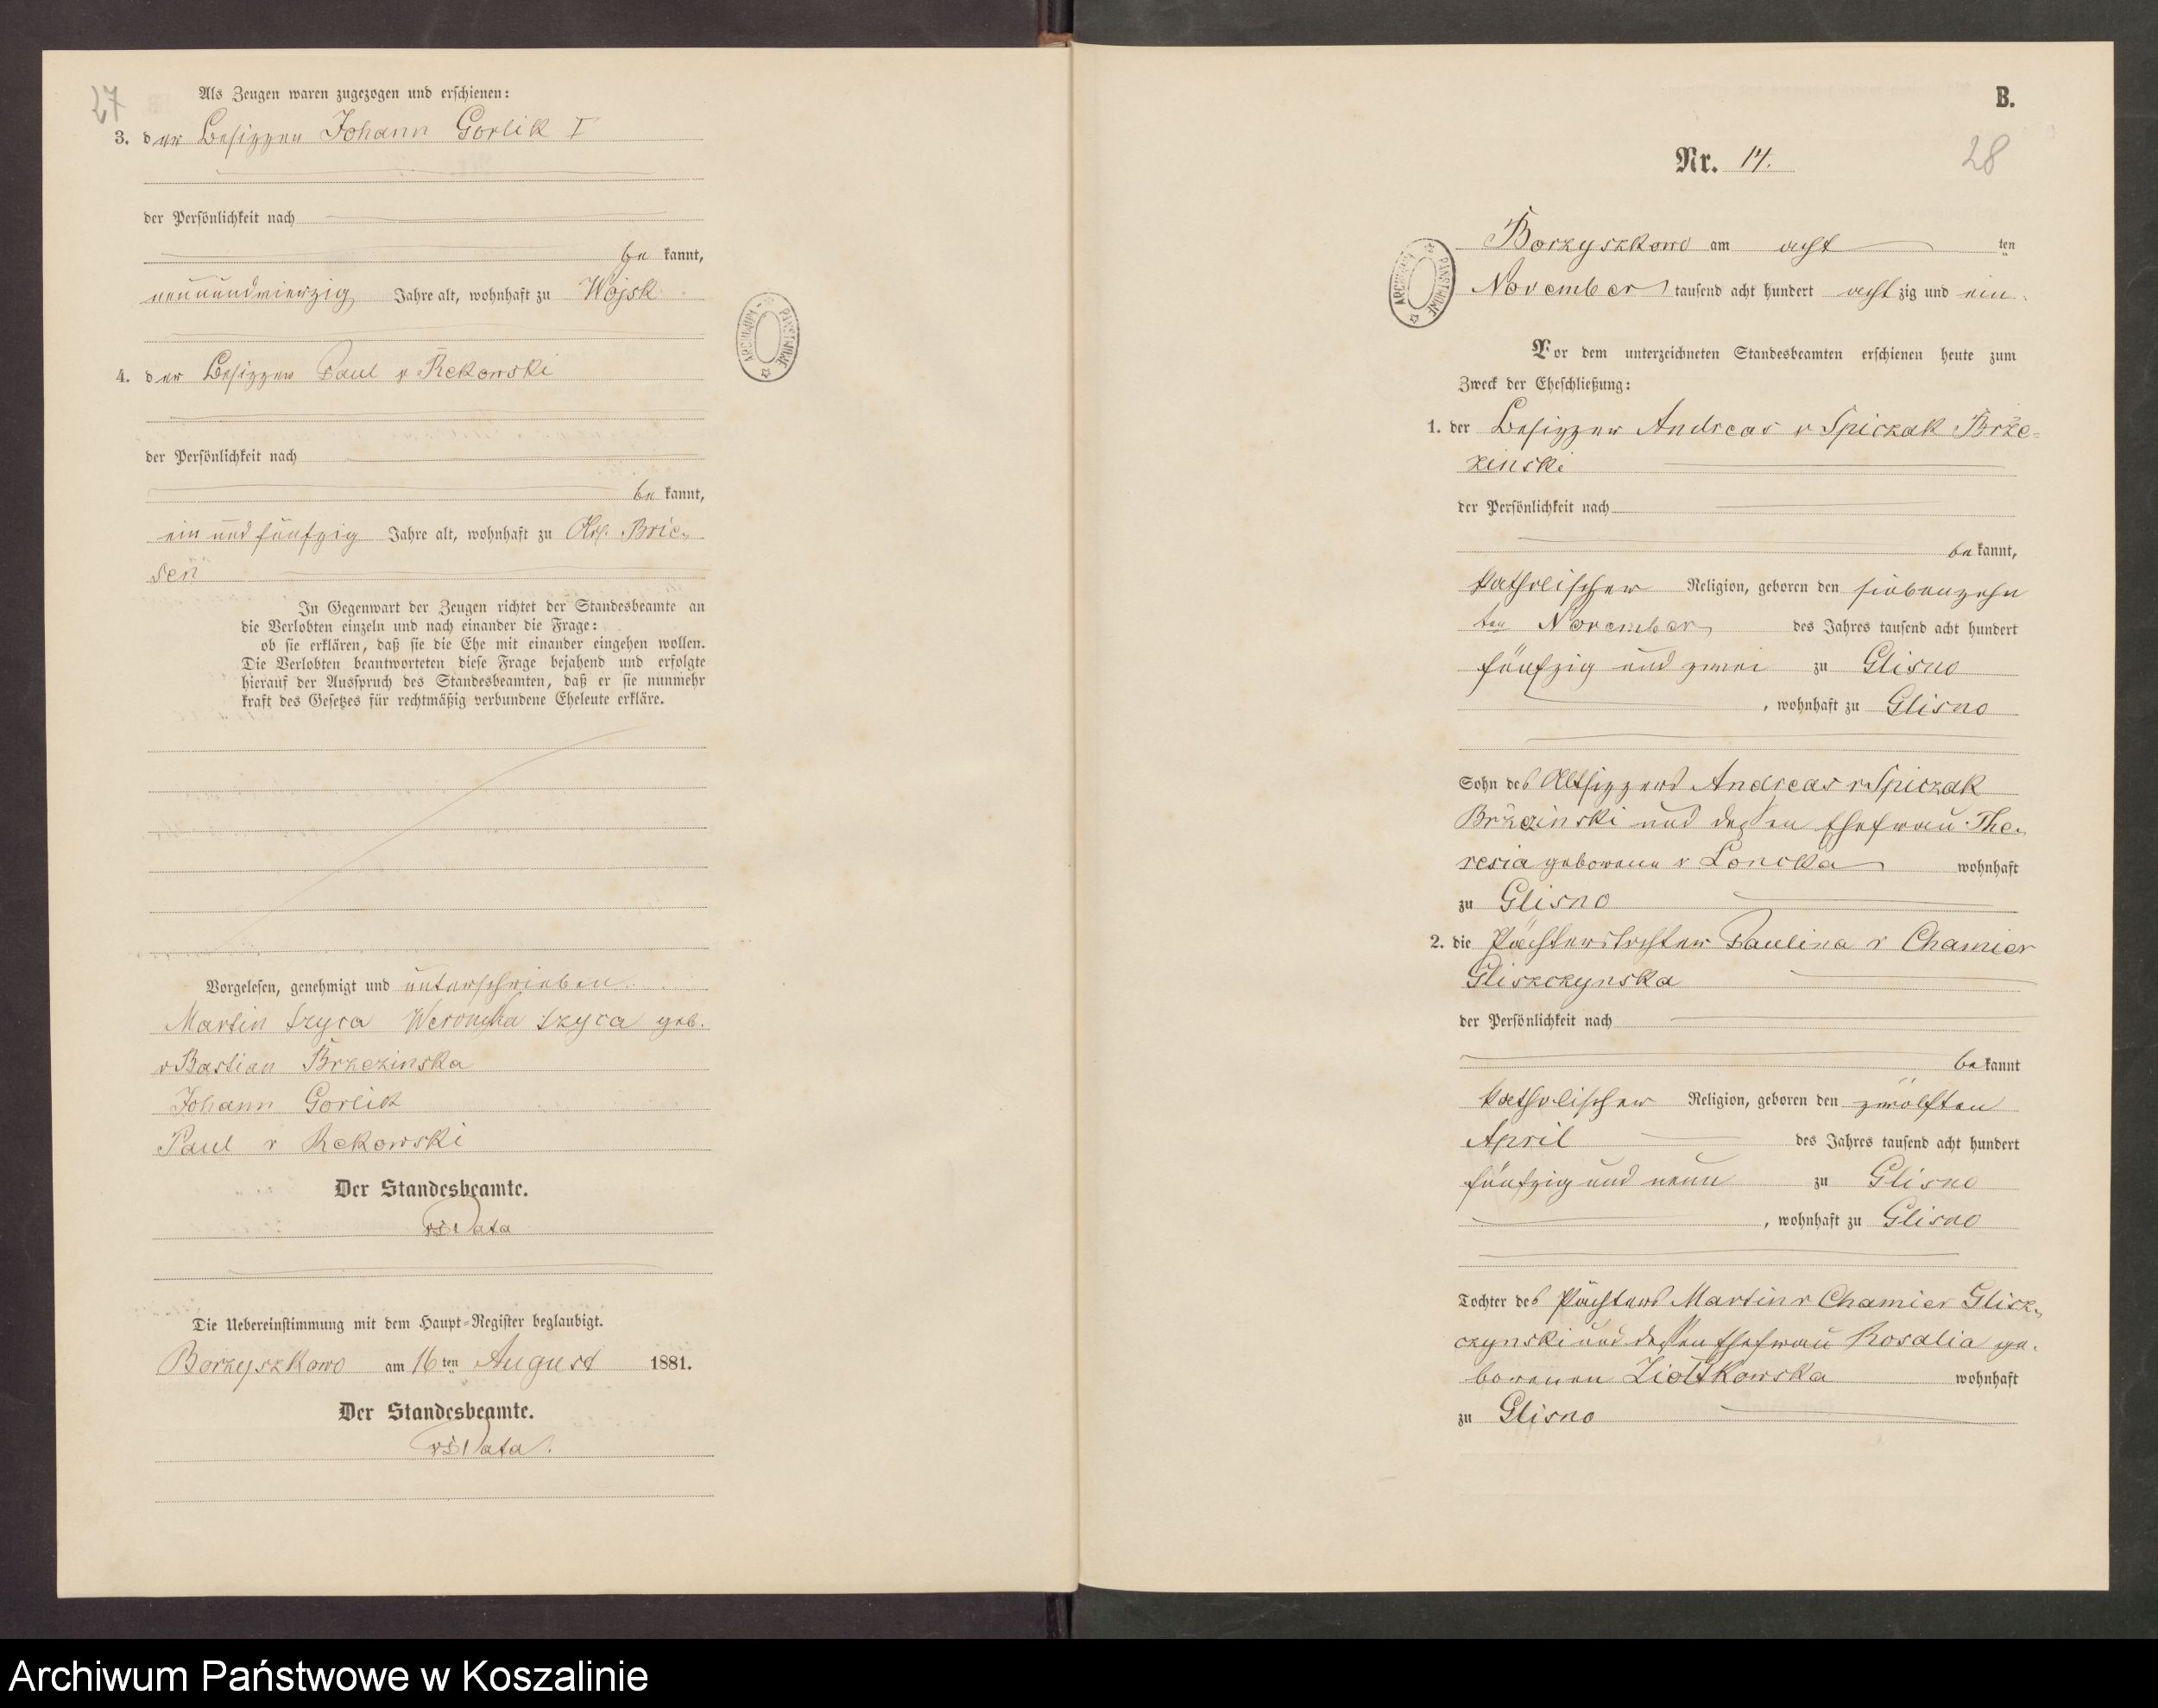 27
Als Zeugen waren zugezogen und erschienen:
3. der Besitzer Johann Gorlik I
der Persönlichkeit nach
be kannt,
neunundvierzig Jahre alt, wohnhaft zu Wojsk
4. der Besitzer Paul v Rekowski
der Persönlichkeit nach
be kannt,
ein und fünfzig Jahre alt, wohnhaft zu Brie-
sen
In Gegenwart der Zeugen richtet der Standesbeamte an
die Verlobten einzeln und nach einander die Frage:
ob sie erklären, daß sie die Ehe mit einander eingehen wollen.
Die Verlobten beantworteten diese Frage bejahend und erfolgte
hierauf der Ausspruch des Standesbeamten, daß er sie nunmehr
kraft des Gesetzes für rechtmäßig verbundene Eheleute erkläre.
Vorgelesen, genehmigt und unterschrieben
Martin Szyca Weronyka Szyca geb.
v Bastian Brzezinska
Johann Gorlik
Paul v Rekowski
Der Standesbeamte.
Die Uebereinstimmung mit dem Haupt-Register beglaubigt.
Borzyszkowo am 16 ten August 1881.
Der Standesbeamte.
ARCHIWUM PAŃSTWOWE
B.
28
Nr. 14.
Borzyszkowo am acht ten
November tausend acht hundert acht zig und ein
ARCHIWUM PAŃSTWOWE
Vor dem unterzeichneten Standesbeamten erschienen heute zum
Zweck der Eheschließung:
1. der Besitzer Andreas v Spiczak Brze-
zinski
der Persönlichkeit nach
be kannt,
katholischer Religion, geboren den siebenzehn
ten November des Jahres tausend acht hundert
fünfzig und zwei zu Glisno
, wohnhaft zu Glisno
Sohn des Altsitzers Andreas v Spiczak
Brzezinski und dessen Ehefrau The-
resia geborene v Loncka wohnhaft
zu Glisno
2. die Pächterstochter Paulina v Chamier
Gliszczynska
der Persönlichkeit nach
be kannt
katholischer Religion, geboren den zwölften
April des Jahres tausend acht hundert
fünfzig und neun zu Glisno
, wohnhaft zu Glisno
Tochter des Pächters Martin v Chamier Glisz-
czynski und dessen Ehefrau Rosalia ge-
borenen Ziolkowska wohnhaft
zu Glisno
Archiwum Państwowe w Koszalinie